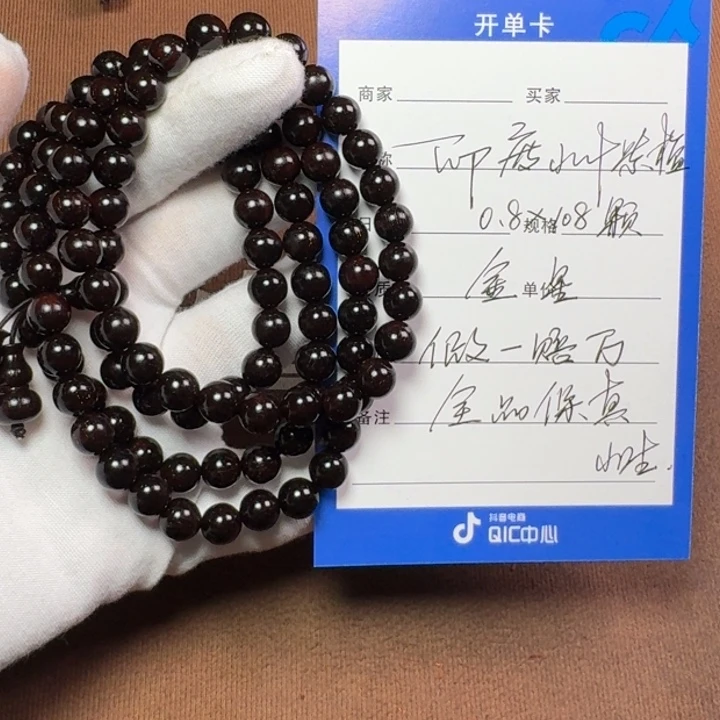 开单卡
商家 买家
称 印度小叶紫檀
日 0.8×108颗 规格
质 金星 单
假一赔万
备注 全品保真
抖音电商
QIC中心